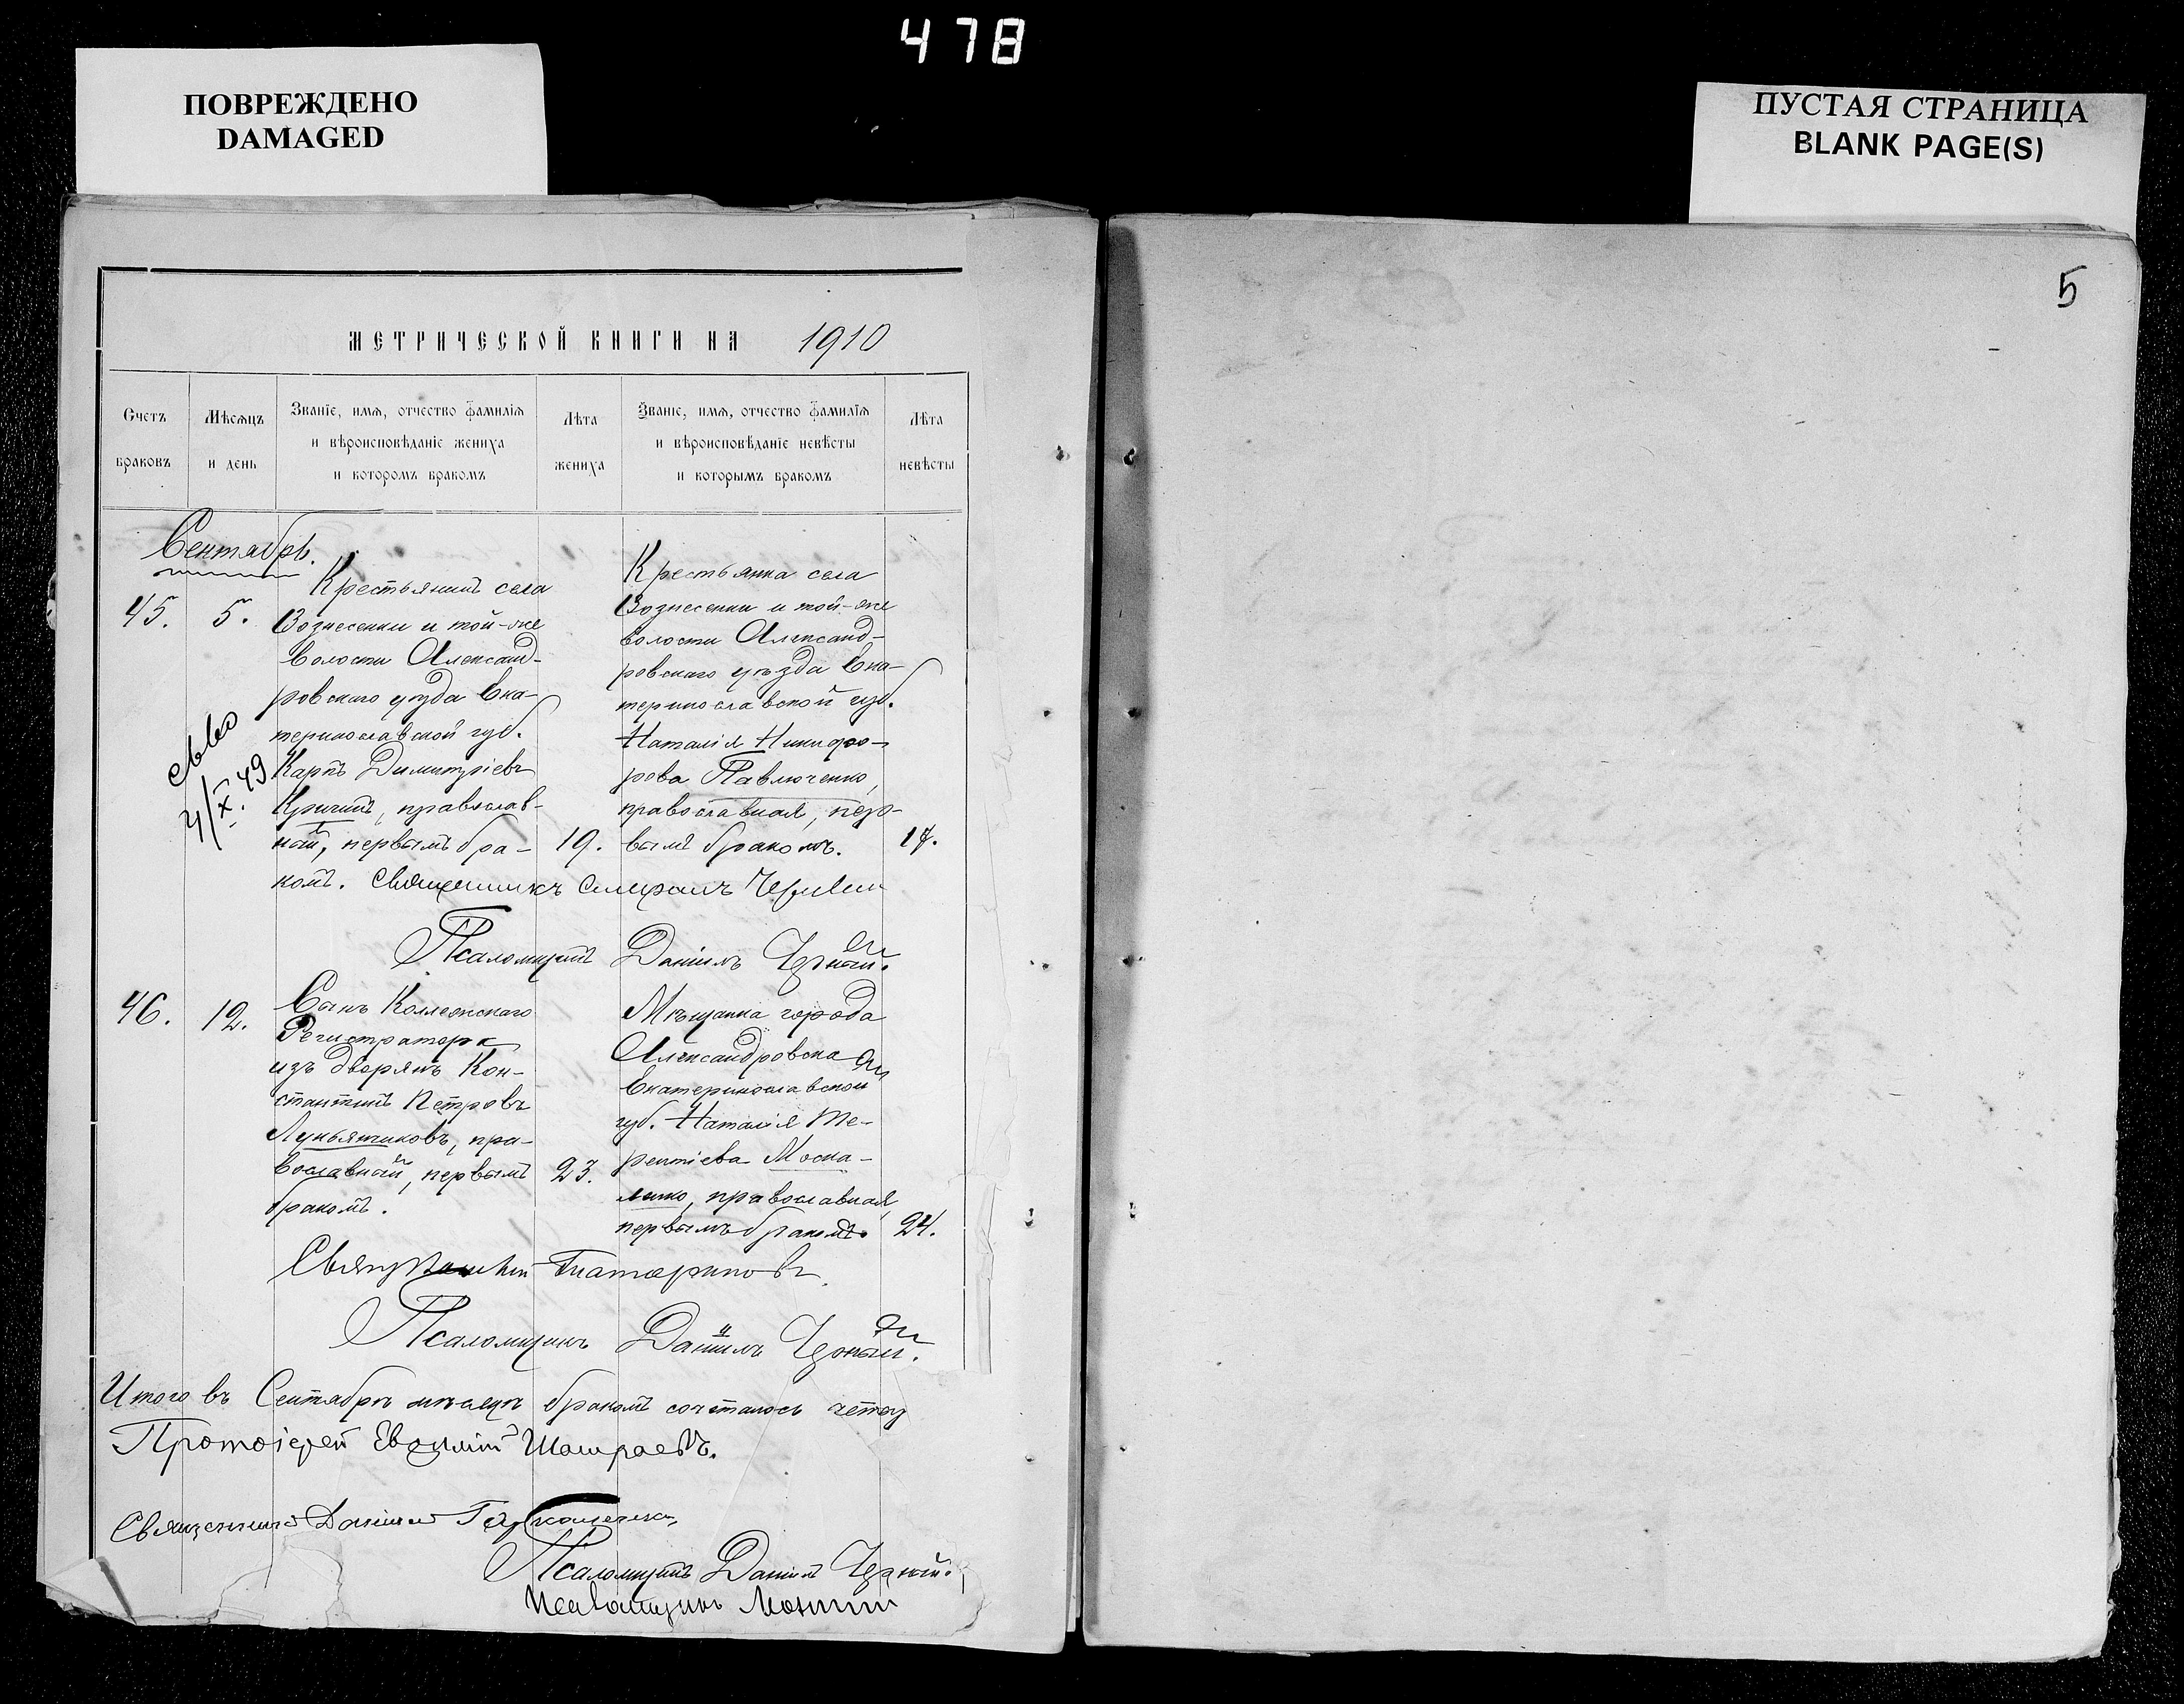 478
ПОВРЕЖДЕНО
DAMAGED
ПУСТАЯ СТРАНИЦА
BLANK PAGE(S)
5
МЕТРИЧЕСКОЙ КНИГИ НА 1910
Счетъ браковъ
Мѣсяцъ и день
Званіе, имя, отчество фамилія
и вѣроисповѣданіе жениха
и которомъ бракомъ
Лѣта жениха
Званіе, имя, отчество фамилія
и вѣроисповѣданіе невѣсты
и которымъ бракомъ
Лѣта невѣсты
Сентябрь.
45.
5.
Крестьянинъ села
Вознесенки и той-же
волости Александ-
ровскаго уѣзда Ека-
теринославской губ.
Карпъ Димитріевъ
Кричитъ, православ-
ный, первымъ бра-
комъ.
19.
Крестьянка села
Вознесенки и той-же
волости Александ-
ровскаго уѣзда Ека-
теринославской губ.
Наталія Никифо-
рова Павлюченко,
православная, пер-
вымъ бракомъ.
17.
Х. 49
Священникъ
Псаломщикъ Даніилъ Черный.
46.
12.
Сынъ Коллежскаго
Регистратора
изъ дворянъ Кон-
стантинъ Петровъ
Лукьянчиковъ, пра-
вославный, первымъ
бракомъ.
23.
Мѣщанка города
Александровска
Екатеринославской
губ. Наталія Те-
рентіева Моска-
ленко, православная,
первымъ бракомъ.
24.
Псаломщикъ Даніилъ Черный.
Итого въ Сентябрѣ мѣсяцѣ бракомъ сочеталось
Протоіерей
Священникъ Даніилъ
Псаломщикъ Даніилъ Черный.
Псаломщикъ